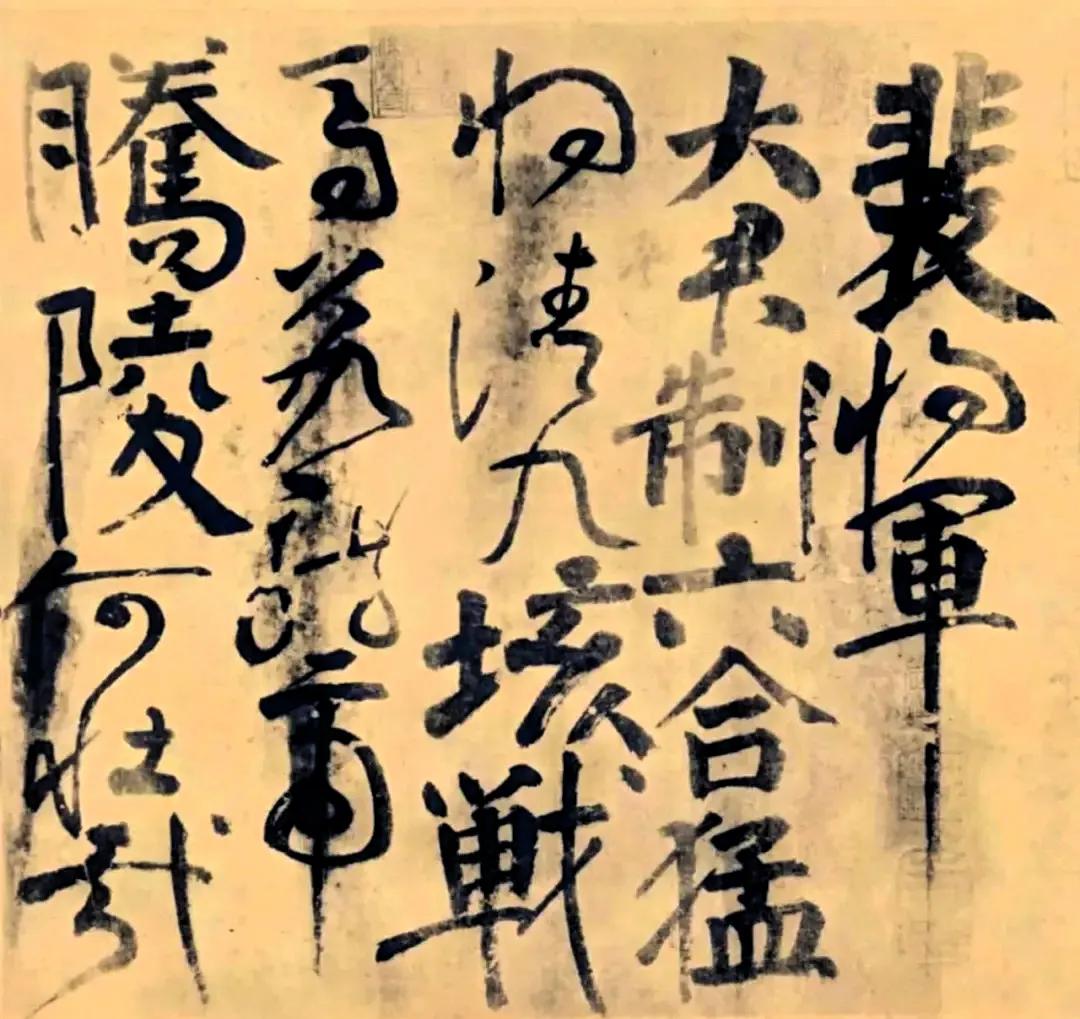 裴將軍
大君制六合猛
將清九垓戰
馬若龍虎
騰陵何壯哉